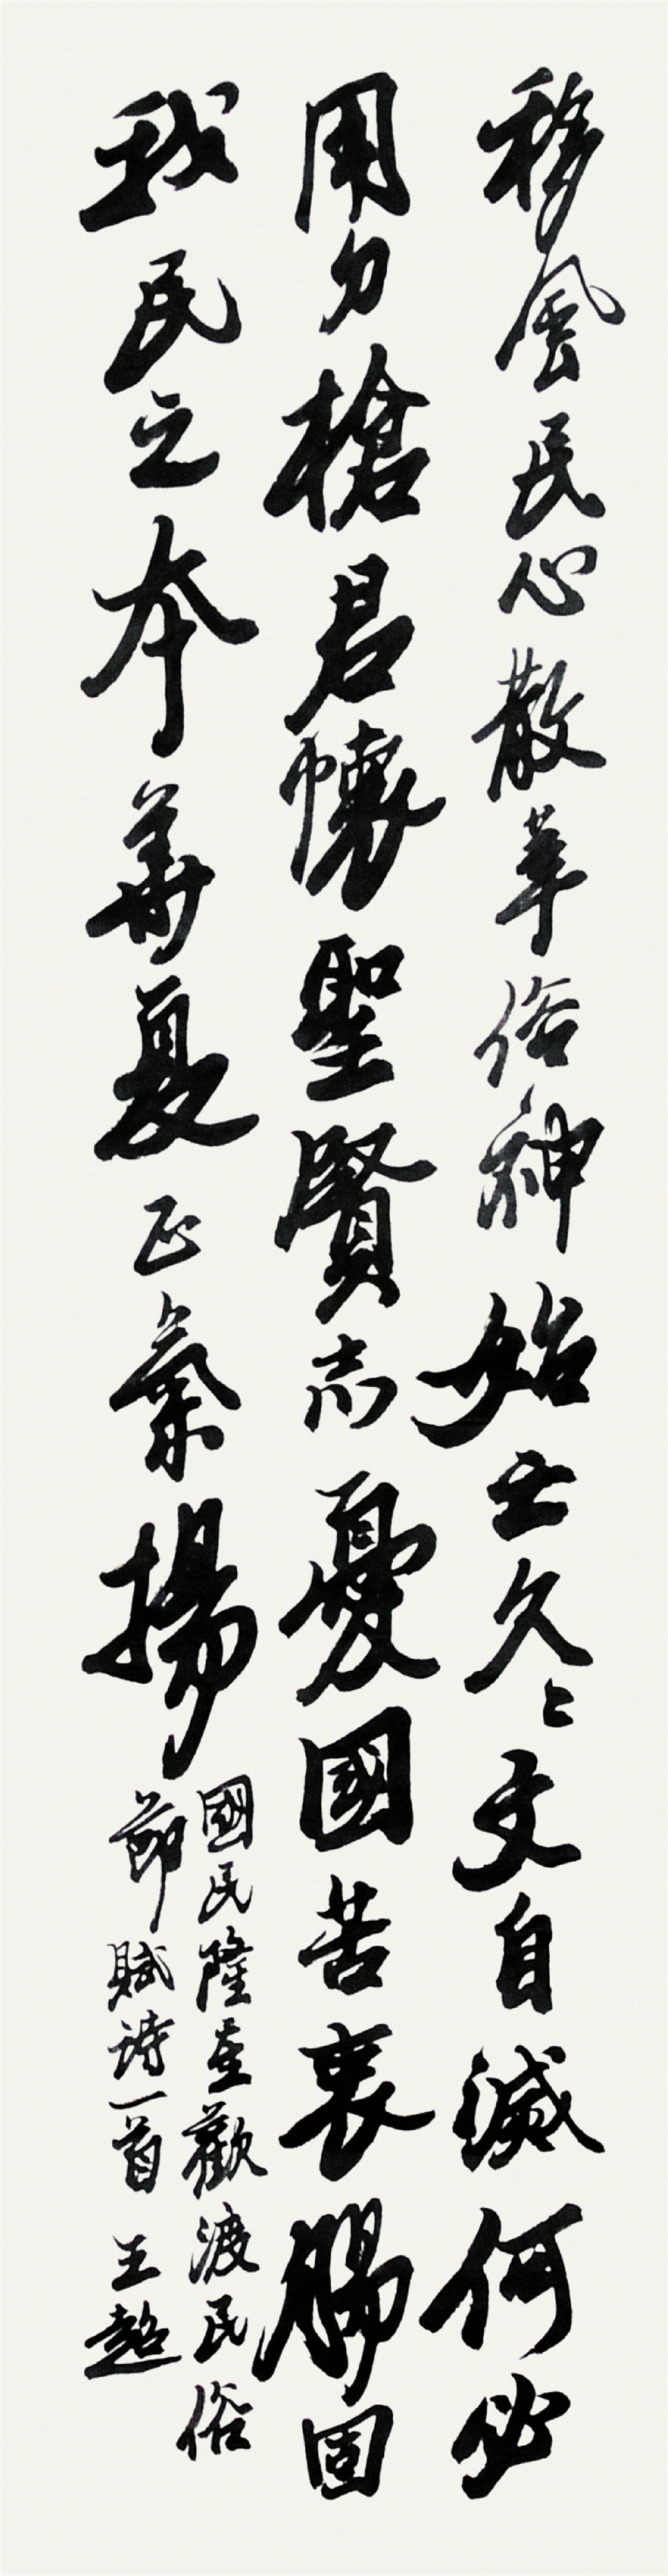 移風民心散革俗神始亡久々文自滅何必
用刀槍君懷聖賢志憂國苦衷腸固
我民之本華夏正氣揚
國民隆重歡渡民俗
節賦詩一首 王超